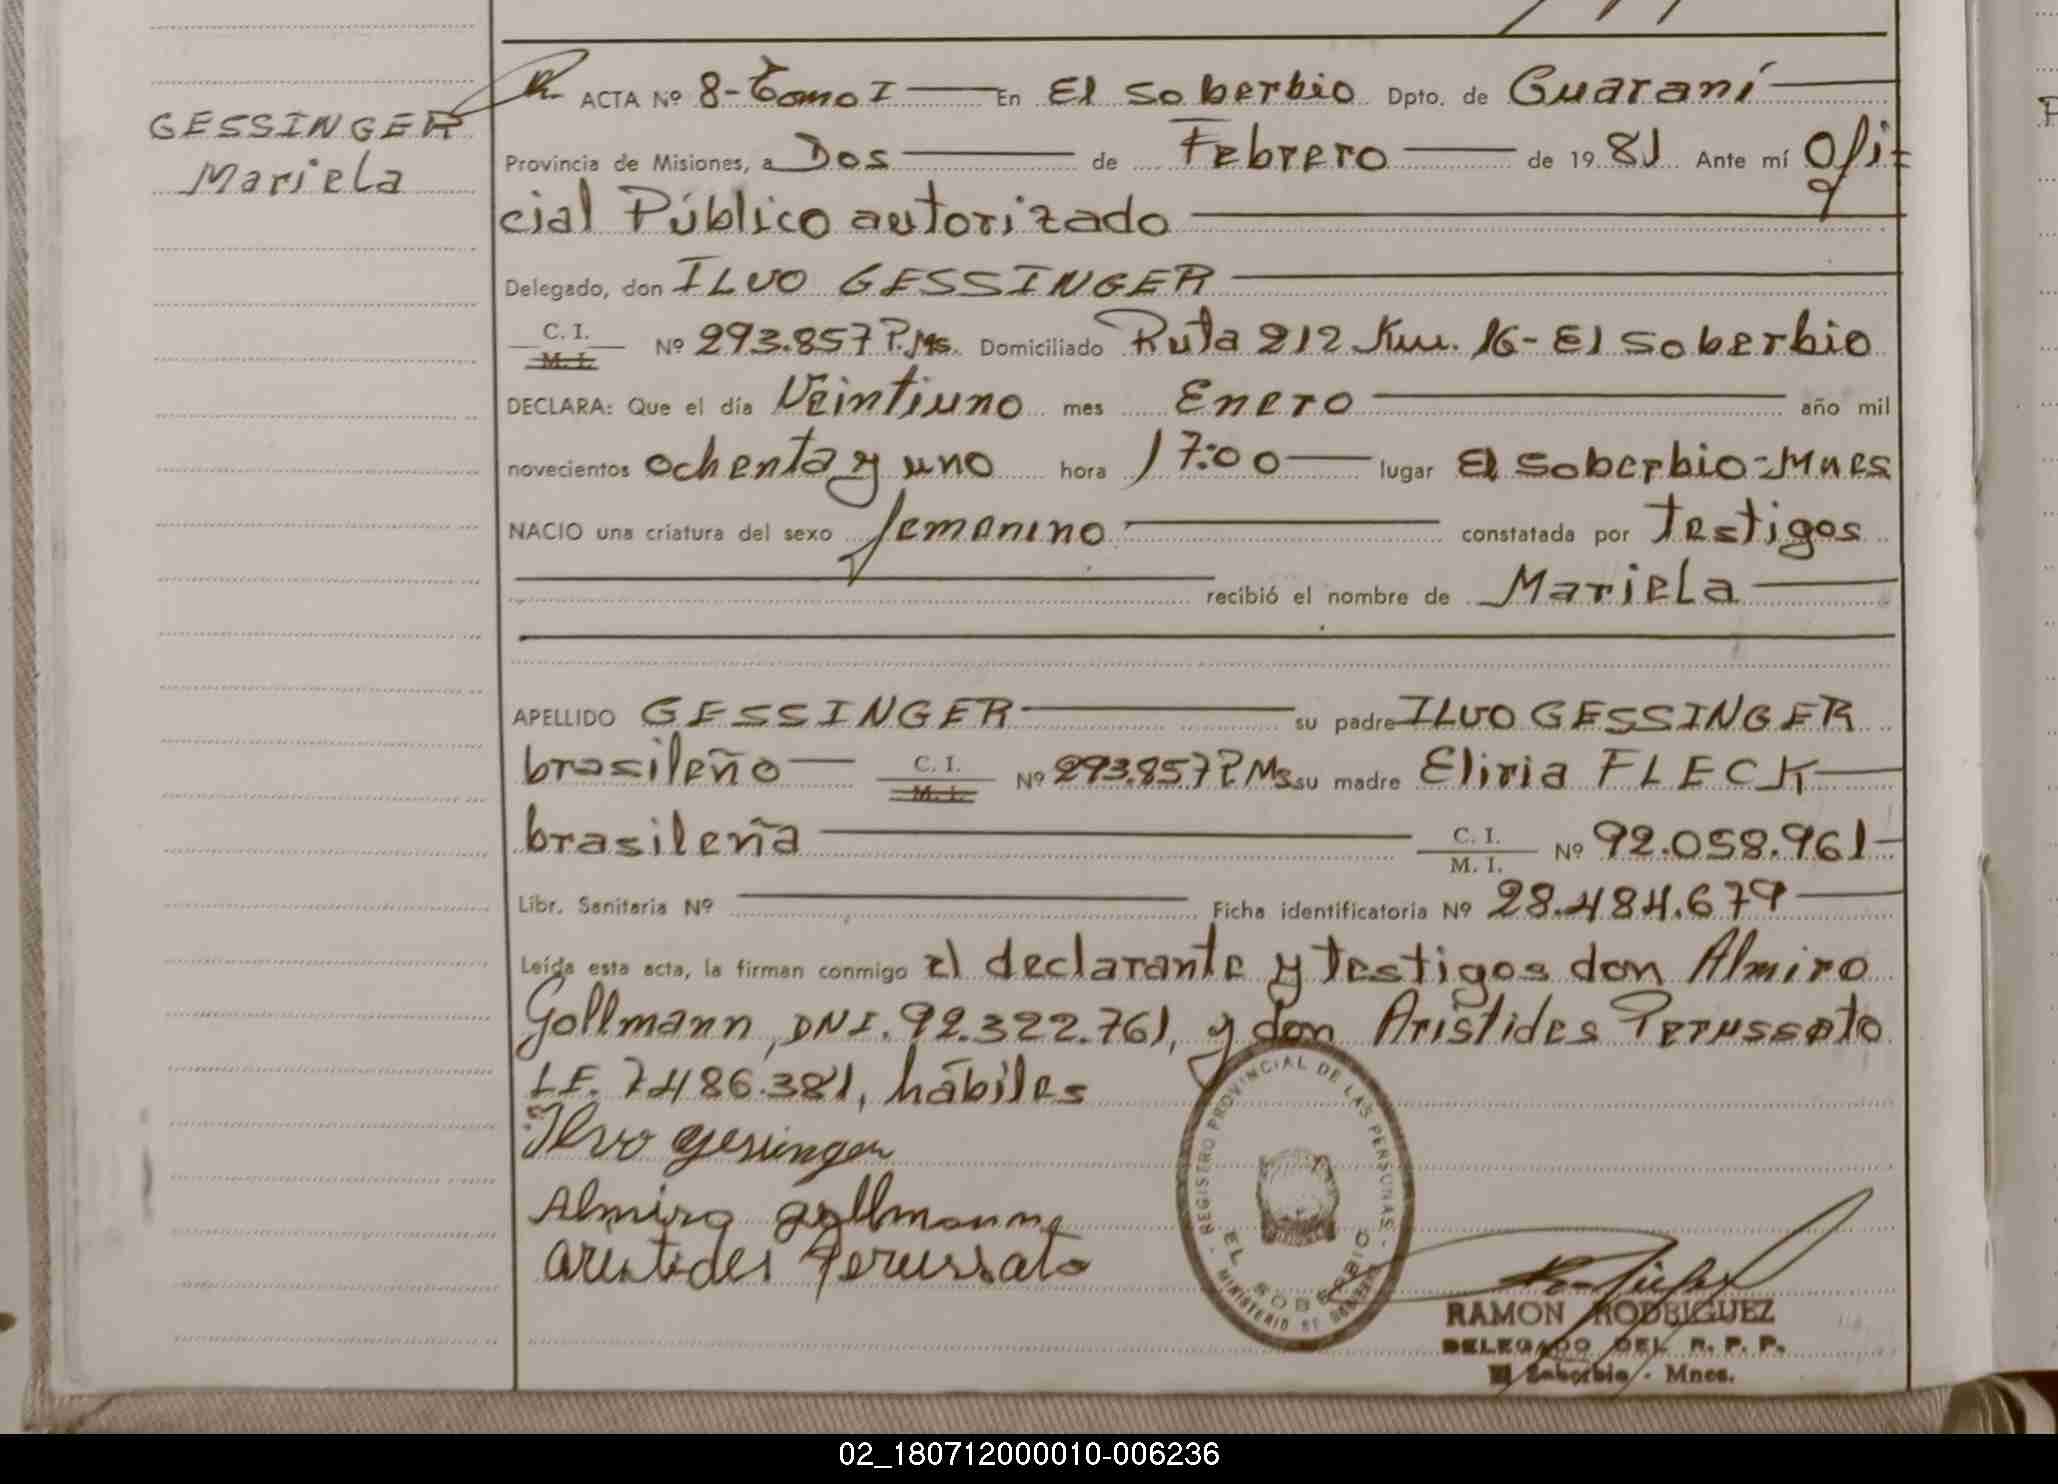 GESSINGER
Mariela
ACTA Nº 8-Tomo I En El Soberbio Dpto. de Guaraní
Provincia de Misiones, a Dos de Febrero de 1981 Ante mí Ofi-
cial Público autorizado
Delegado, don ILVO GESSINGER
C. I. M. I. Nº 293.857 P.Ms. Domiciliado Ruta 212 Km. 16- El Soberbio
DECLARA: Que el día Veintiuno mes Enero año mil
novecientos ochenta y uno hora 17:00 lugar El Soberbio-Mnes
NACIO una criatura del sexo femenino constatada por testigos
recibió el nombre de Mariela
APELLIDO GESSINGER su padre ILVO GESSINGER
brasileño C. I. M. I. Nº 293.857 P.Ms su madre Eliria FLECK
brasileña C. I. M. I. Nº 92.058.961
Libr. Sanitaria Nº Ficha identificatoria Nº 28.484.679
Leída esta acta, la firman conmigo el declarante y testigos don Almiro
Gollmann, DNI. 92.322.761, y don Aristides Perussato
LE. 7486.381, hábiles
Ilvo Gessinger
Almiro Gollmann
Aristides Perussato
REGISTRO PROVINCIAL DE LAS PERSONAS
EL SOBERBIO
MINISTERIO DE GOBIERNO
RAMON RODRIGUEZ
DELEGADO DEL R. P. P.
El Soberbio - Mnes.
02_180712000010-006236